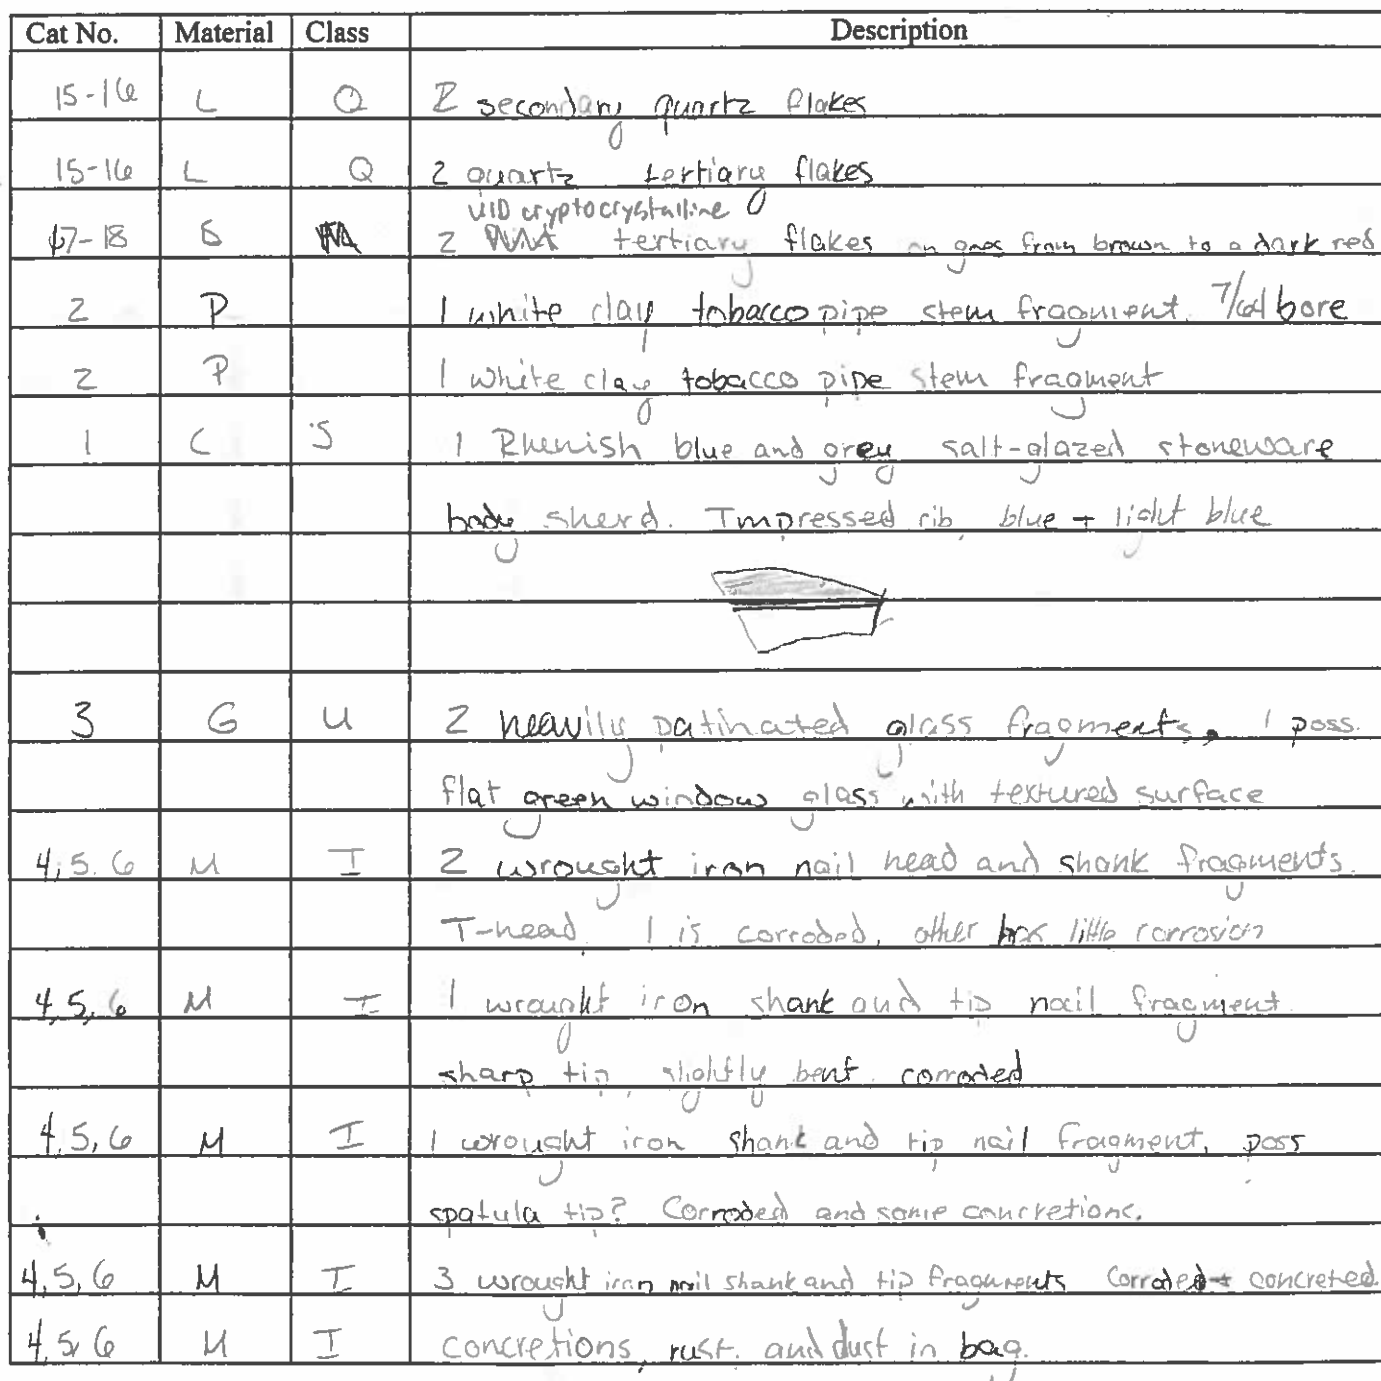 Cat No. Material Class Description
15-16 L Q 2 secondary quartz flakes
15-16 L Q 2 quartz tertiary flakes
UID cryptocrystalline
17-18 2 tertiary flakes goes from brown to a dark red
2 P 1 white clay tobacco pipe stem fragment. 7/64 bore
2 P 1 white clay tobacco pipe stem fragment
1 C S 1 Rhenish blue and grey salt-glazed stoneware
body sherd. Impressed rib, blue + light blue
3 G U 2 heavily patinated glass fragments, 1 poss.
flat green window glass with textured surface
4, 5, 6 M I 2 wrought iron nail head and shank fragments.
T-head. 1 is corroded, other has little corrosion
4, 5, 6 M I 1 wrought iron shank and tip nail fragment
sharp tip, slightly bent. corroded
4, 5, 6 M I 1 wrought iron shank and tip nail fragment, poss
spatula tip? Corroded and some concretions.
4, 5, 6 M I 3 wrought iron nail shank and tip fragments Corroded + concreted
4, 5, 6 M I concretions, rust, and dust in bag.